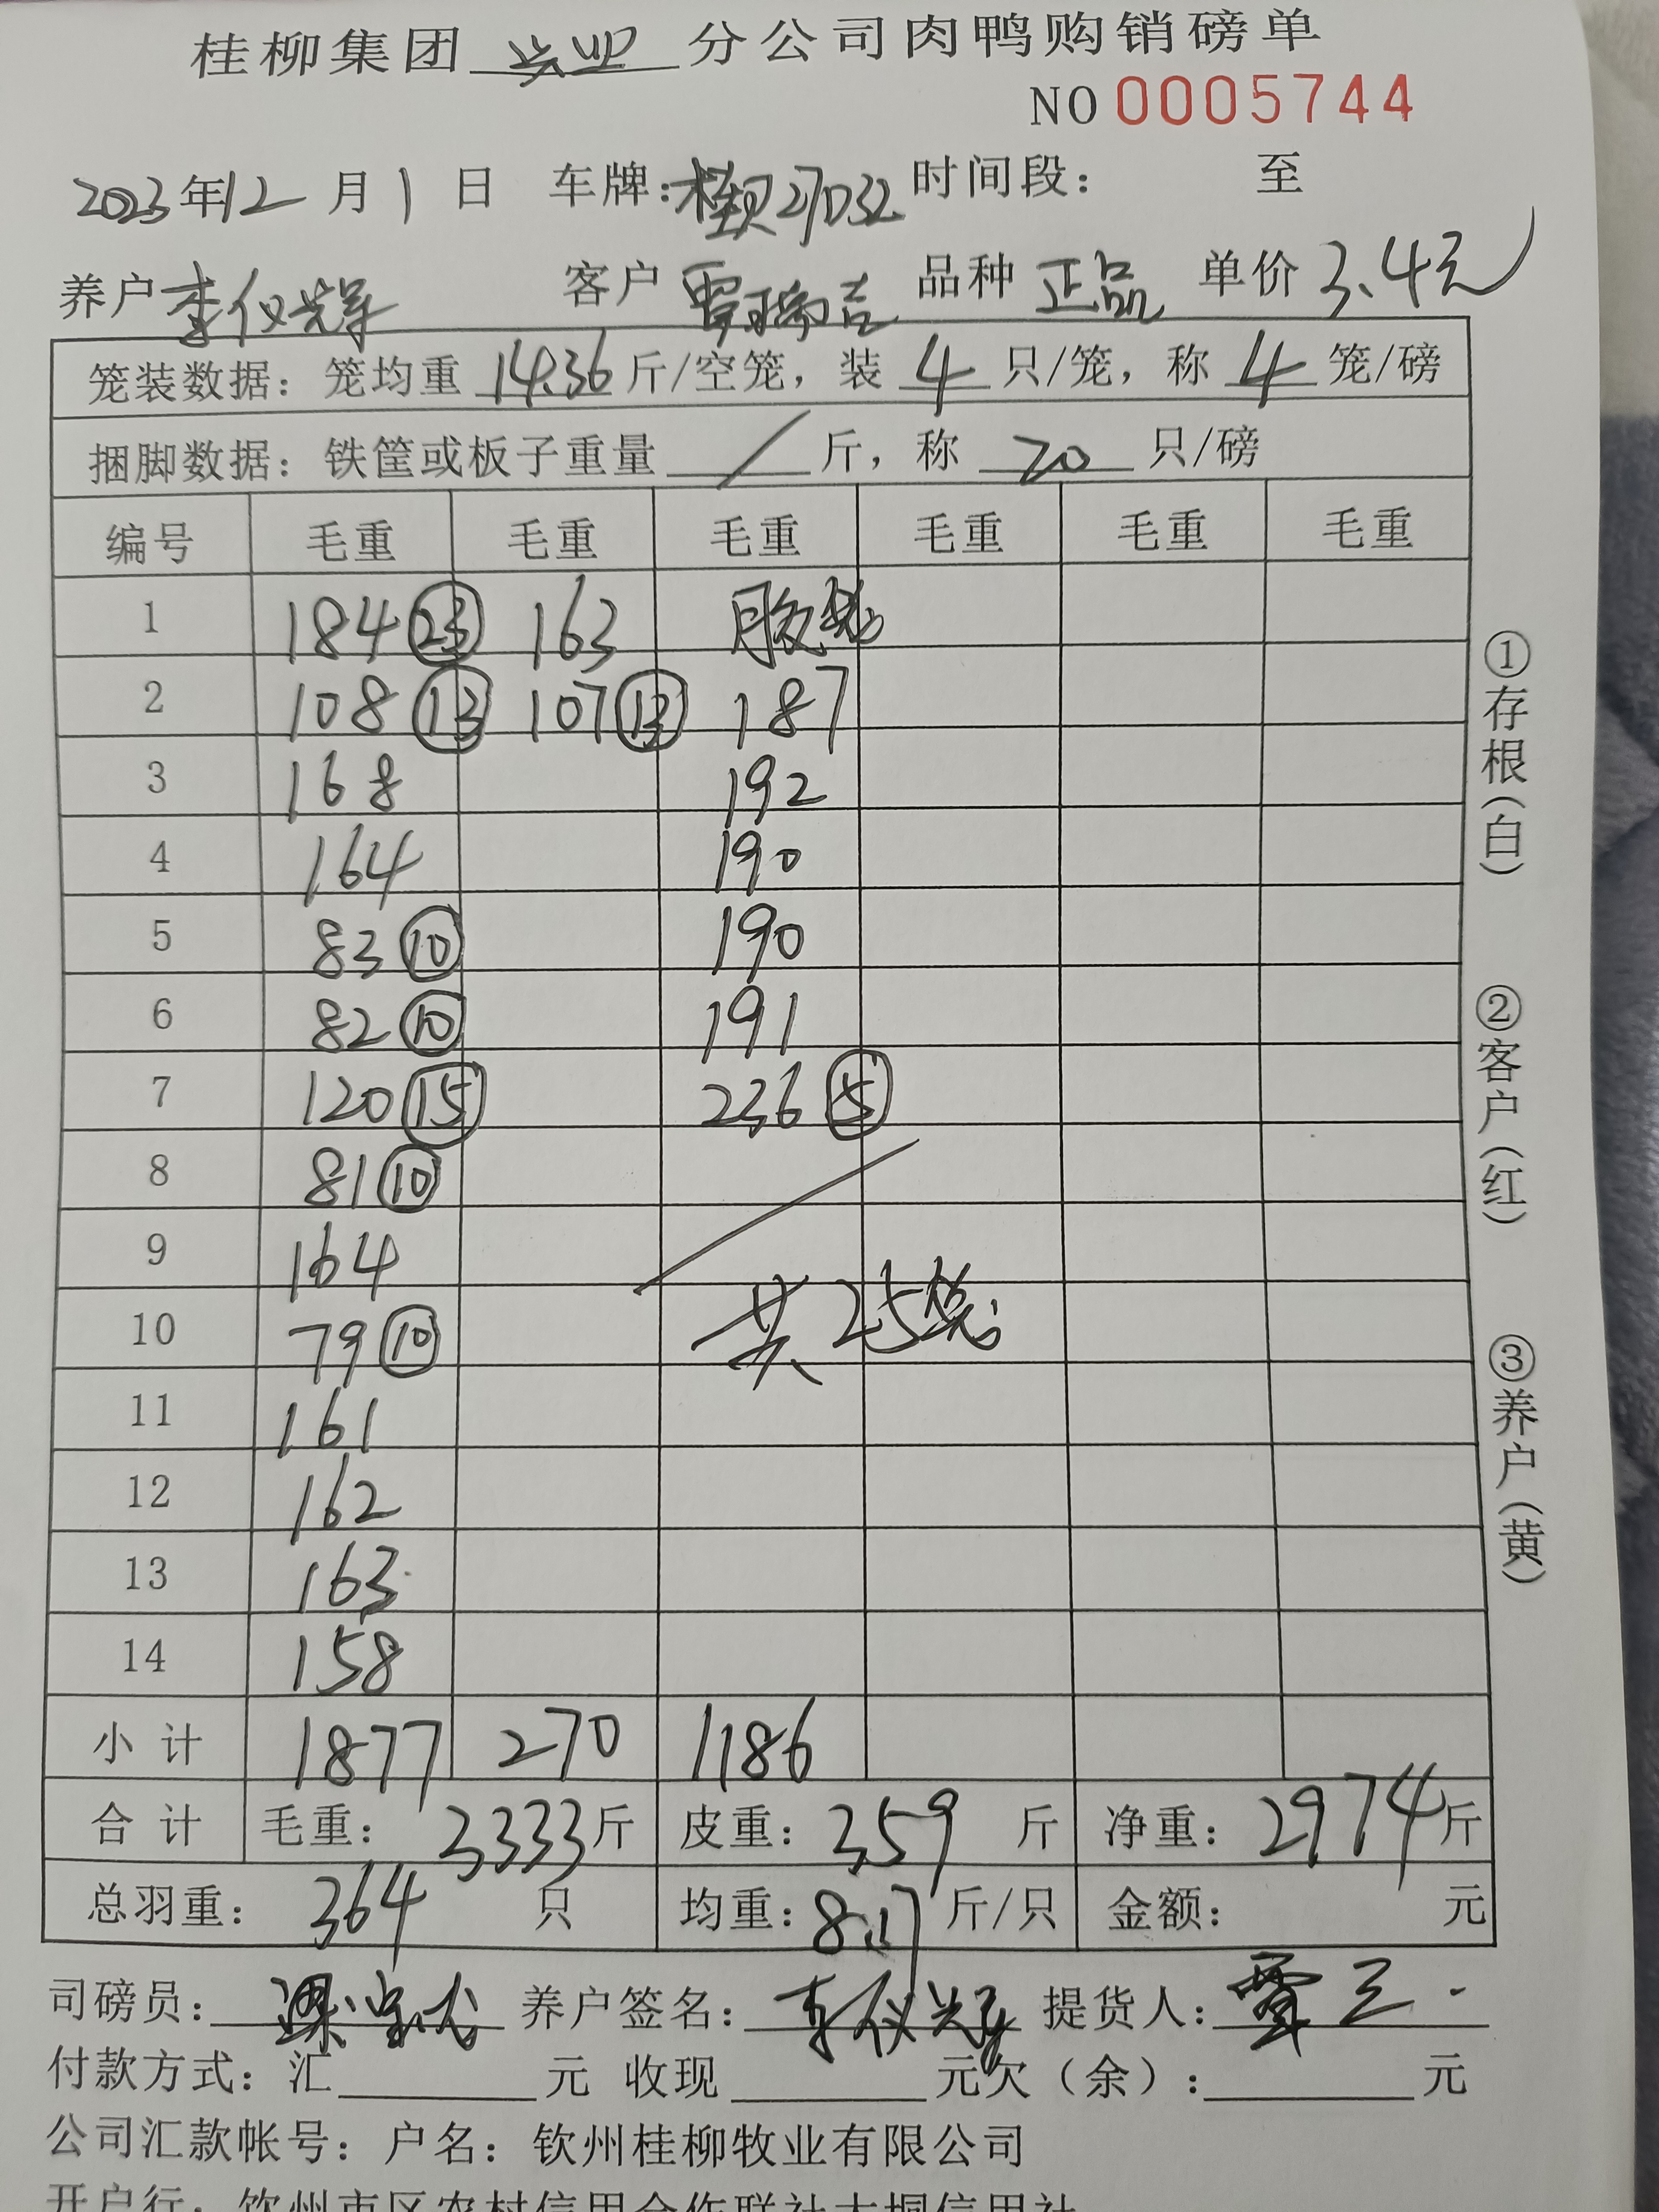 桂柳集团 兴业 分公司肉鸭购销磅单
NO 0005744
2023年12月1日 车牌:桂R27D32 时间段: 至
养户 李仪辉 客户 覃瑞吉 品种 正品 单价 3.4元
笼装数据: 笼均重 14.36 斤/空笼, 装 4 只/笼, 称 4 笼/磅
捆脚数据: 铁筐或板子重量 / 斤, 称 20 只/磅
编号 毛重 毛重 毛重 毛重 毛重 毛重
1 184 (23) 163 胶笼
2 108 (13) 107 (13) 187
3 168 192
4 164 190
5 83 (10) 190
6 82 (10) 191
7 120 (15) 236 (5)
8 81 (10)
9 164
10 79 (10) 共25笼
11 161
12 162
13 163
14 158
小计 1877 270 1186
合计 毛重: 3333斤 皮重: 359 斤 净重: 2974斤
总羽重: 364 只 均重: 8.17 斤/只 金额: 元
司磅员: 养户签名: 李仪辉 提货人: 覃三
付款方式: 汇 元 收现 元欠(余): 元
公司汇款帐号: 户名: 钦州桂柳牧业有限公司
开户行: 钦州市区农村信用合作联社大垌信用社
①存根(白)
②客户(红)
③养户(黄)